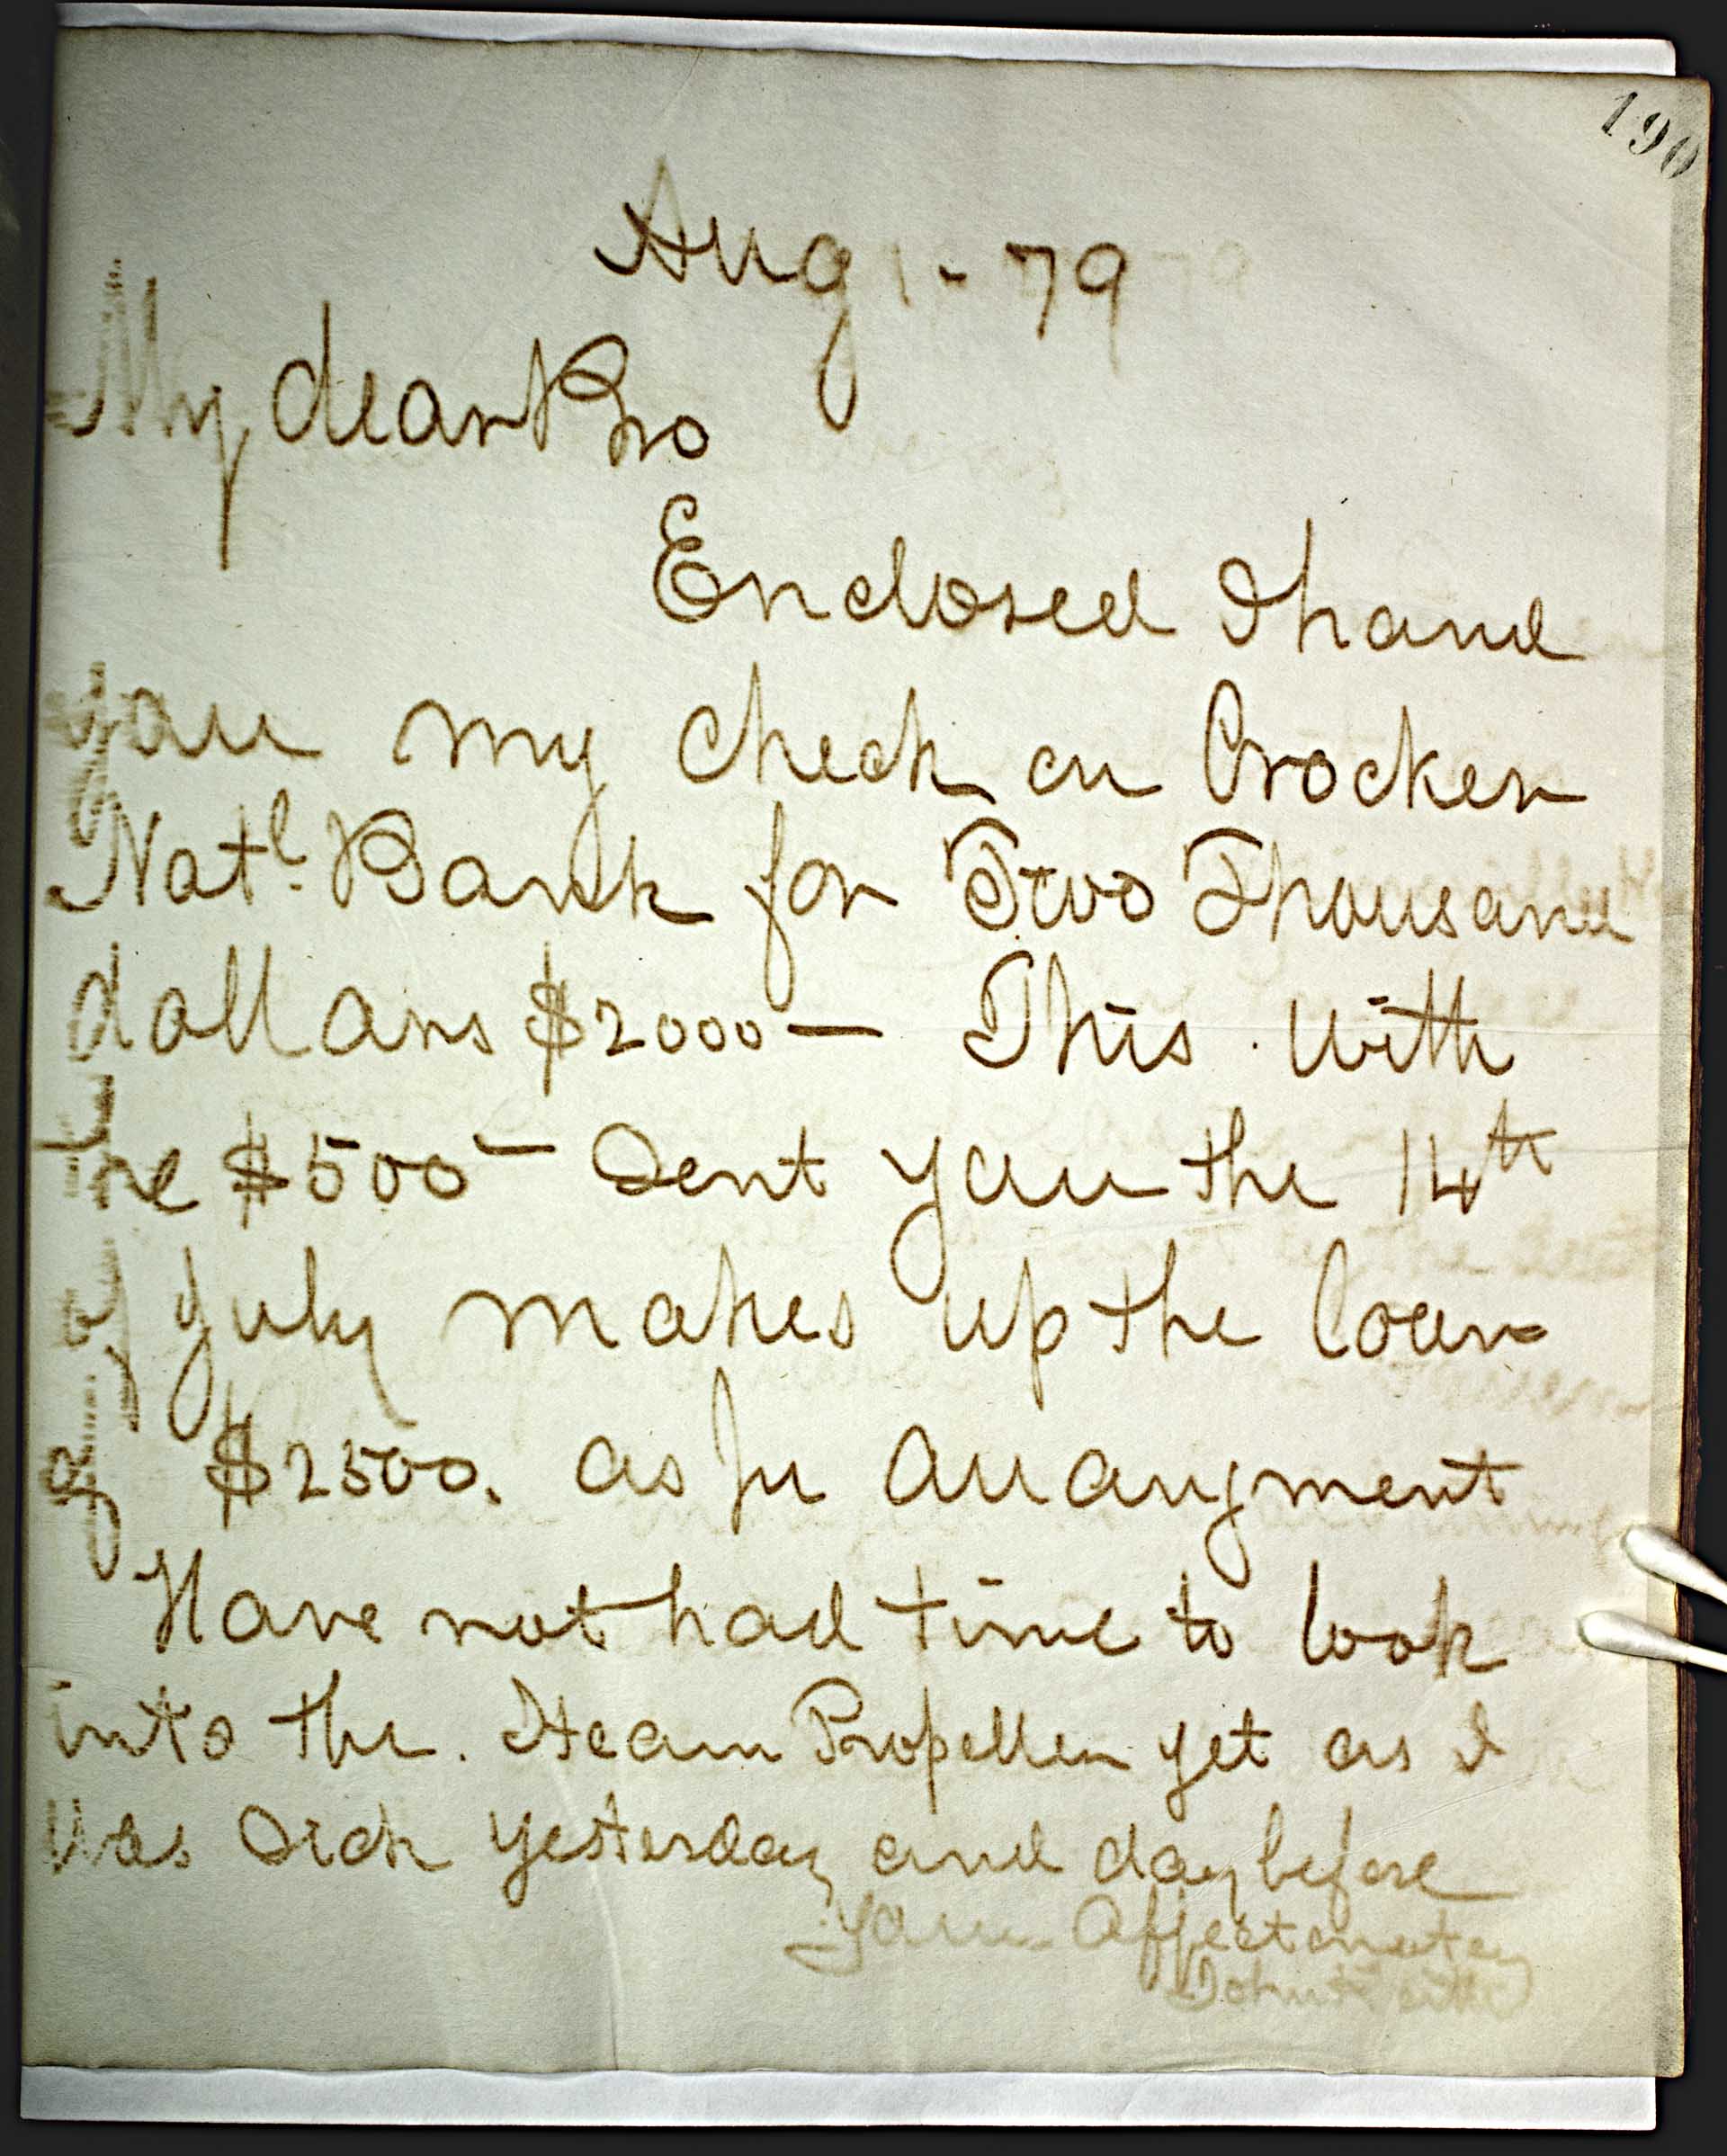 190
Aug 1 - 79
My dear Bro
Enclosed I hand
you my check on Crocker
Natl. Bank for Two Thousand
dollars $2000 — This with
the $500 — Sent you the 14th
of July makes up the loan
of $2500. as per arrangment
Have not had time to look
into the Steam Propeller yet as I
was Sick yesterday and day before
Your Affectionately
John Keith